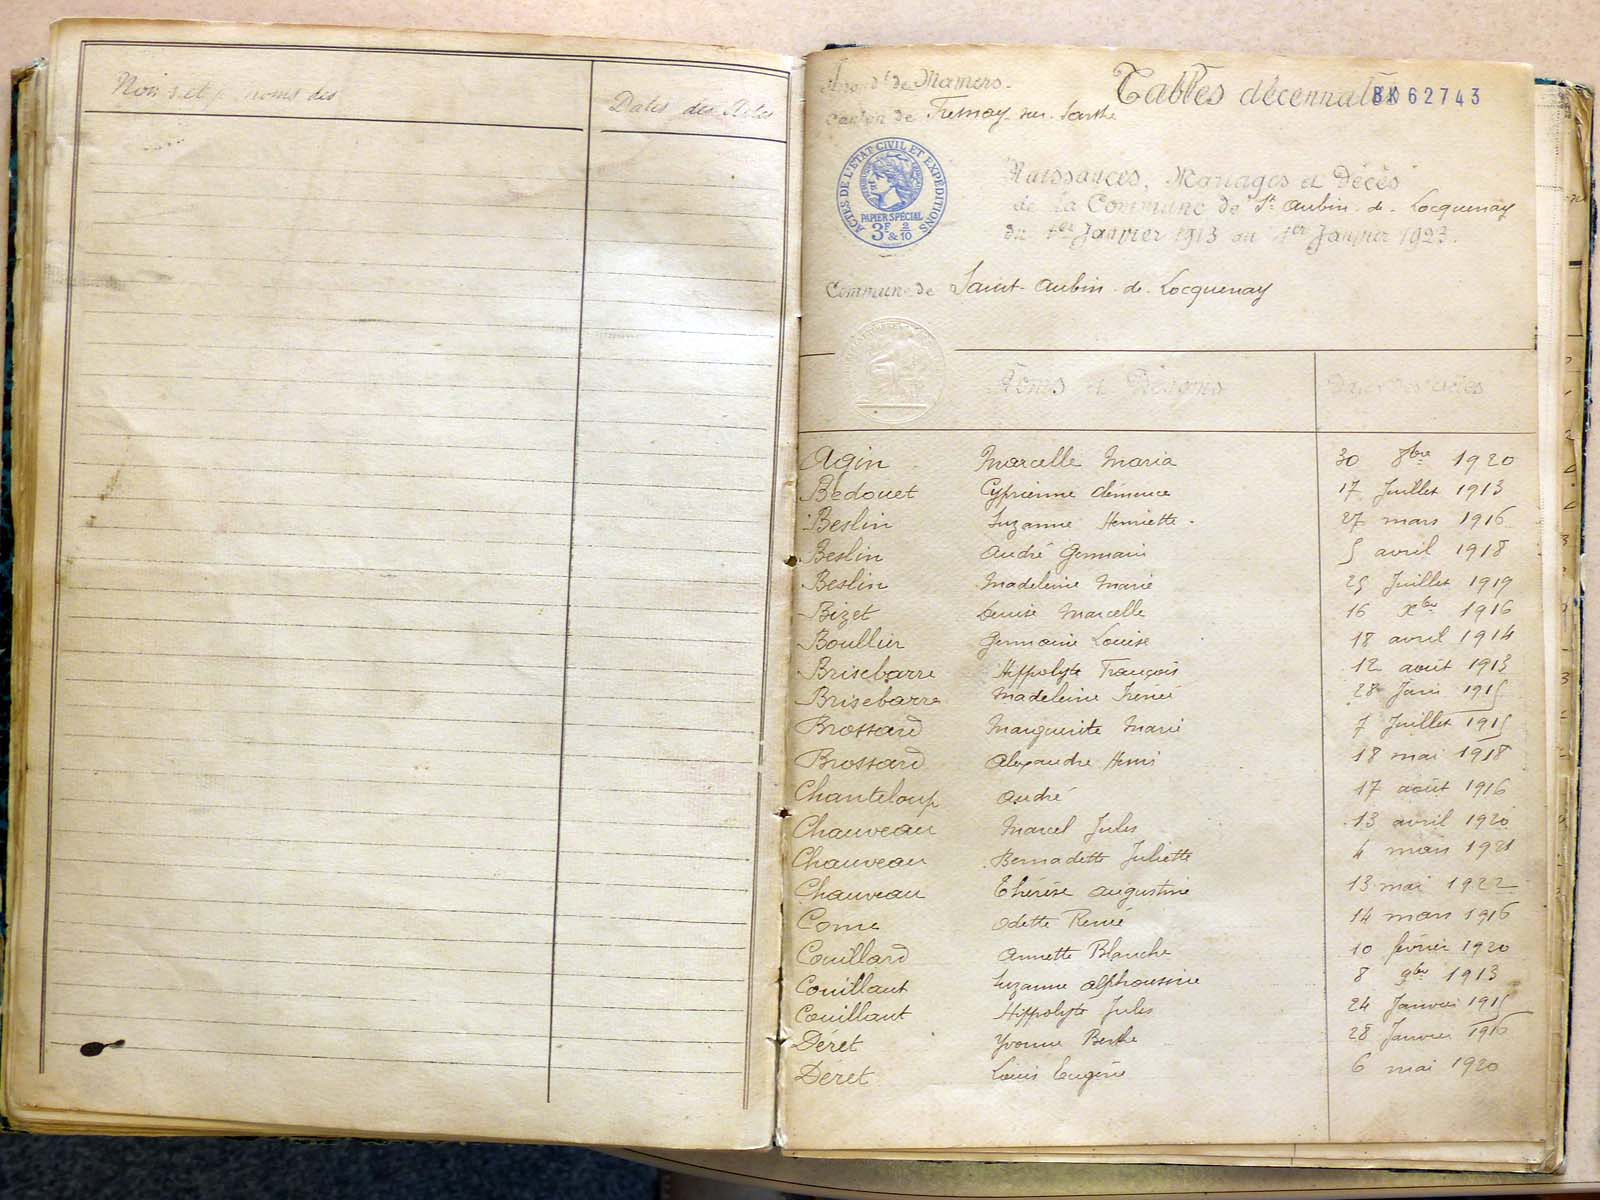 Noms et prénoms des
Dates des Actes
Arrond.t de Mamers.
Canton de Fresnay-sur-Sarthe
Tables décennales
BK 62743
ACTES DE L'ETAT CIVIL ET EXPÉDITIONS
PAPIER SPÉCIAL
3F & 2/10
Naissances, Mariages et Décès
de la Commune de St Aubin-de-Locquenay
du 1er Janvier 1913 au 1er Janvier 1923.
Commune de Saint-Aubin-de-Locquenay
Noms et Prénoms
Dates des actes
Agin Marcelle Maria 30 8bre 1920
Bedouet Cyprienne Clémence 17 Juillet 1913
Beslin Suzanne Henriette 27 mars 1916
Beslin André Germain 5 avril 1918
Beslin Madeleine Marie 25 Juillet 1919
Bizet Denise Marcelle 16 Xbre 1916
Boullier Germaine Louise 18 avril 1914
Brisebarre Hippolyte François 12 août 1913
Brisebarre Madeleine Irénée 28 Juin 1915
Brossard Marguerite Marie 7 Juillet 1915
Brossard Alexandre Henri 18 mai 1918
Chanteloup André 17 août 1916
Chauveau Marcel Jules 13 avril 1920
Chauveau Bernadette Juliette 4 mars 1921
Chauveau Thérèse Augustine 13 mai 1922
Come Odette Renée 14 mars 1916
Couillard Annette Blanche 10 février 1920
Couillaut Suzanne Alphonsine 8 9bre 1913
Couillaut Hippolyte Jules 24 Janvier 1915
Déret Yvonne Berthe 28 Janvier 1916
Deret Louis Eugène 6 mai 1920